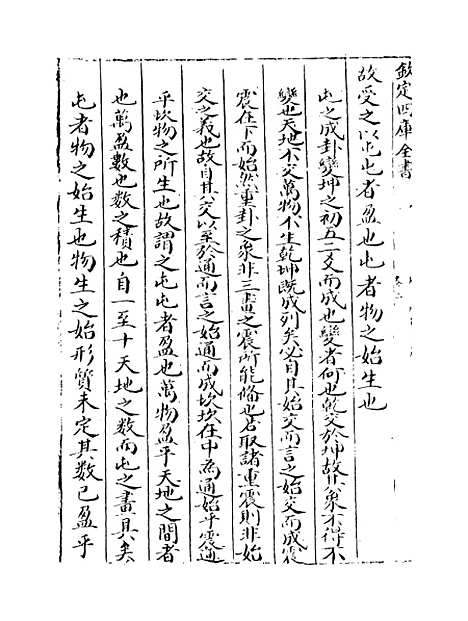 欽定四庫全書
故受之以屯屯者盈也屯者物之始生也
屯之成卦變坤之初五二爻而成也變者何也乾交於坤故其象不得不
變也天地不交萬物不生乾坤既成列矣必自其始交而言之始交而成震
震在下而始然重卦之象非三畫之震所能備也若取諸重震則非始
交之義也故自其交以至於通而言之始通而成坎坎在中為通始乎震通
乎坎物之所生也故謂之屯屯者盈也萬物盈乎天地之間者
也萬盈數也數之積也自一至十天地之數而屯之畫具矣
屯者物之始生也物生之始形質未定其數已盈乎